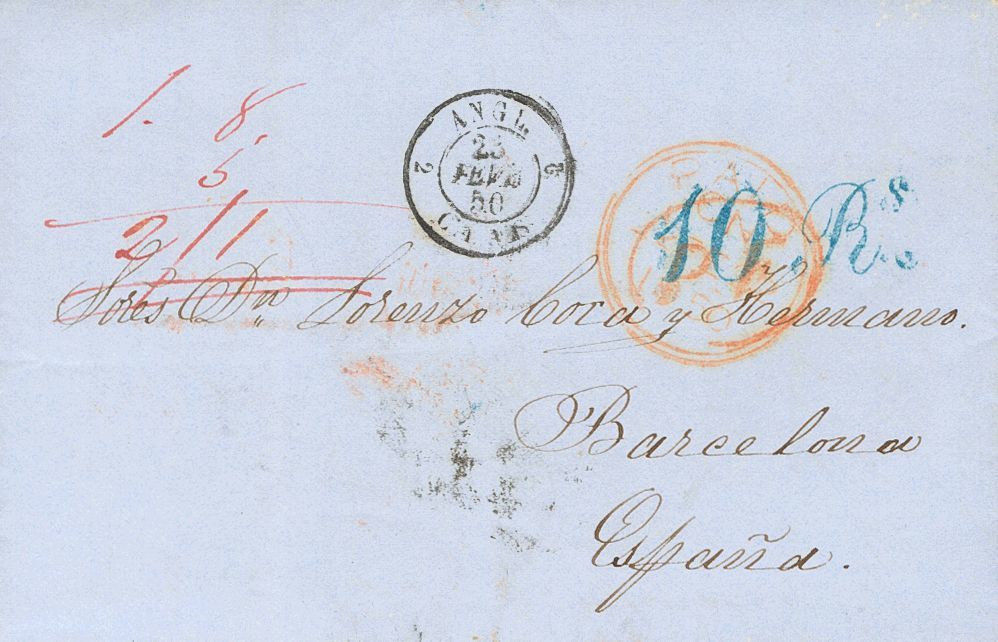 1. 8.
5
2/1
ANGL.
2 2
23
FEVR
50
10 Rs.
Sores Dn Lorenzo Coca y Hermano.
Barcelona
España.